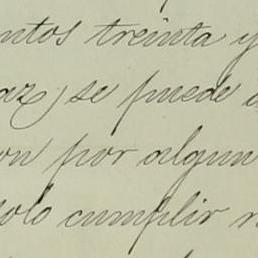 ntos treinta y
az, se puede
on por algun
solo cumplir